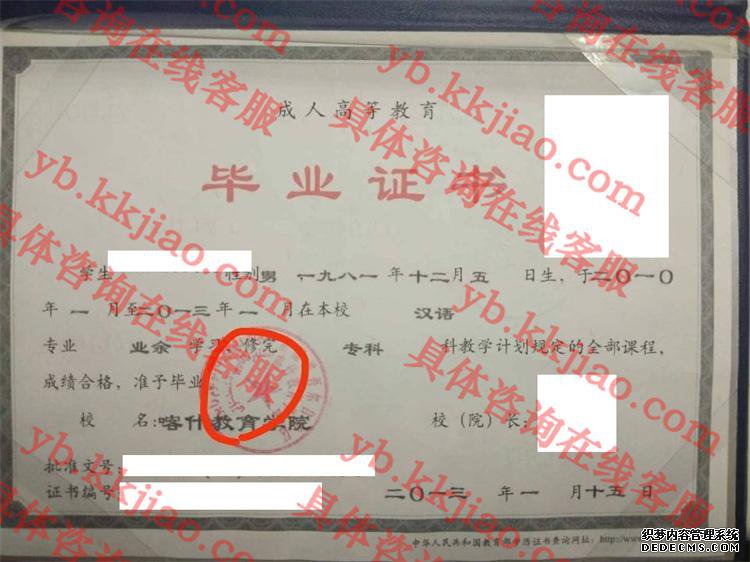 成人高等教育
毕业证书
学生 性别 男 一九八一 年 十二月 五 日生，于二〇一〇
年 一 月至二〇一三年 一 月在本校 汉语
专业 业余 学习，修完 专科 科教学计划规定的全部课程，
成绩合格，准予毕业
校 名：喀什教育学院 校（院）长：
批准文号：
证书编号： 二〇一三 年 一 月 十五 日
中华人民共和国教育部学历证书查询网址：http://www
具体咨询在线客服
yb.kkjiao.com
具体咨询在线客服
yb.kkjiao.com
具体咨询在线客服
yb.kkjiao.com
具体咨询在线客服
yb.kkjiao.com
织梦内容管理系统
DEDECMS.COM